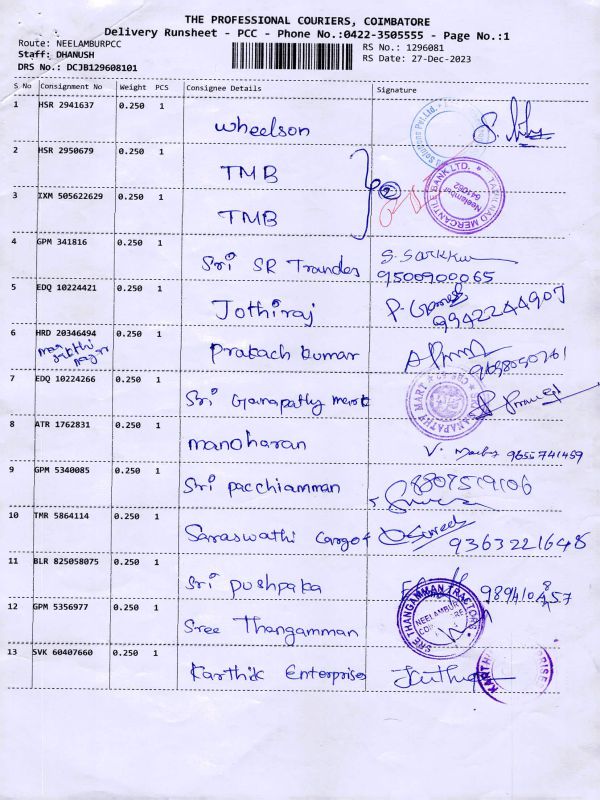 THE PROFESSIONAL COURIERS, COIMBATORE
Delivery Runsheet - PCC - Phone No.:0422-3505555 - Page No.:1
Route: NEELAMBURPCC
Staff: DHANUSH
DRS No.: DCJB129608101
RS No.: 1296081
RS Date: 27-Dec-2023
S No Consignment No Weight PCS Consignee Details Signature
1 HSR 2941637 0.250 1 Wheelson
2 HSR 2950679 0.250 1 TMB
3 IXM 505622629 0.250 1 TMB
2
TAMILNAD MERCANTILE BANK LTD.
Neelambur
4 GPM 341816 0.250 1 Sri SR Trandes
9500900065
5 EDQ 10224421 0.250 1 Jothiraj
9942244907
6 HRD 20346494 0.250 1 Prakach kumar
7 EDQ 10224266 0.250 1 Sri Ganapathy mert
GANAPATHY MART
8 ATR 1762831 0.250 1 manoharan
9655741459
9 GPM 5340085 0.250 1 Sri pacchiamman
8807519106
10 TMR 5864114 0.250 1 Saraswathi Cargo
Suresh
9363221648
11 BLR 825058075 0.250 1 Sri pushpaka
12 GPM 5356977 0.250 1 Sree Thangamman
SRE THANGAMMAN TRACTORS
NEELAMBUR
13 SVK 60407660 0.250 1 Karthik Enterprises